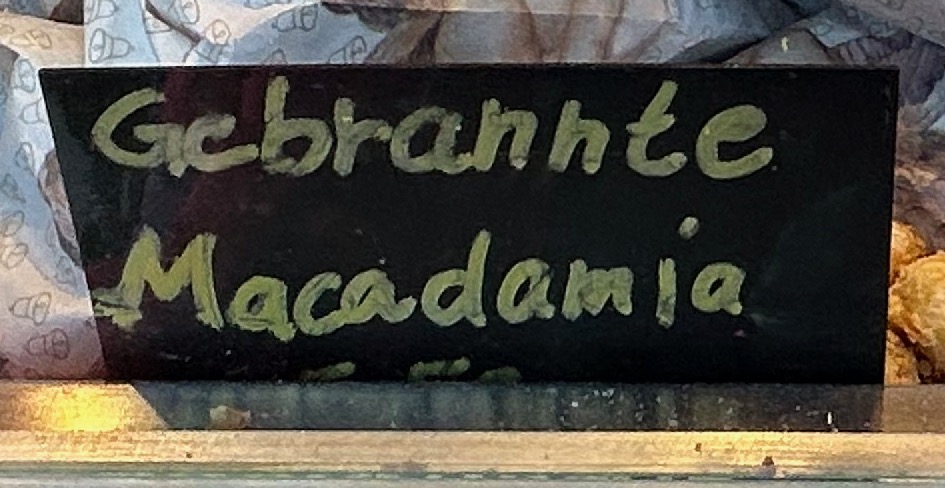 Gebrannte
Macadamia